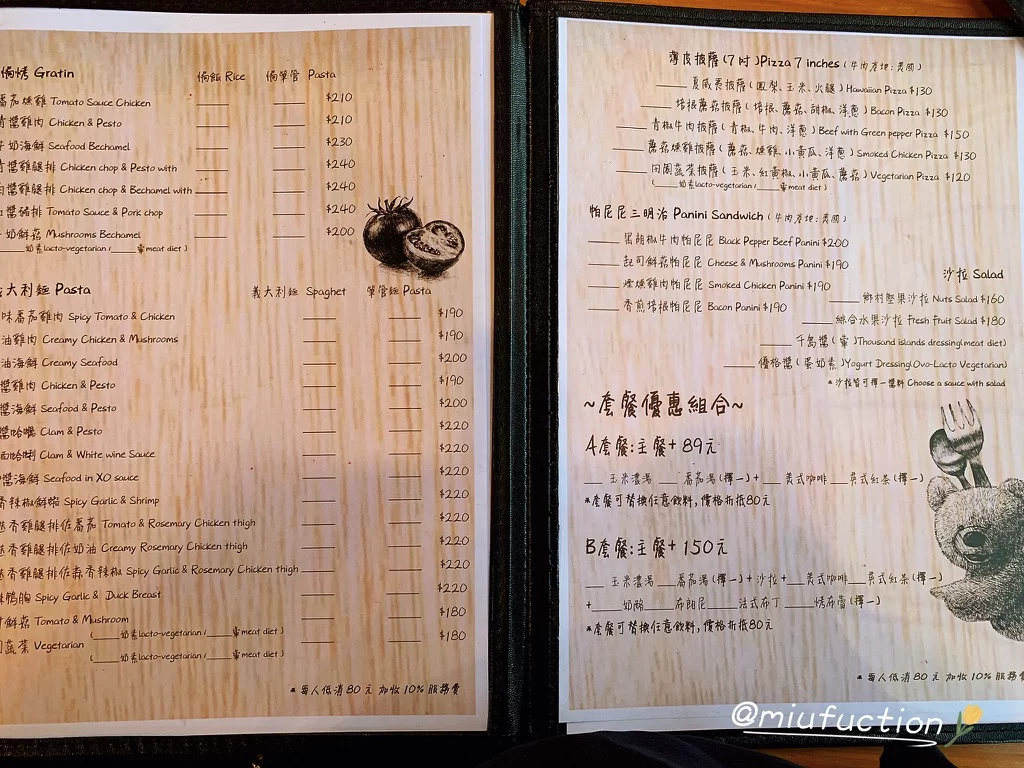 焗烤 Gratin 焗飯 Rice 焗筆管 Pasta
番茄燻雞 Tomato Sauce Chicken $210
青醬雞肉 Chicken & Pesto $210
牛奶海鮮 Seafood Bechamel $230
青醬雞腿排 Chicken chop & Pesto with $240
白醬雞腿排 Chicken chop & Bechamel with $240
紅醬豬排 Tomato Sauce & Pork chop $240
牛奶鮮菇 Mushrooms Bechamel $200
奶素lacto-vegetarian / 葷meat diet )
義大利麵 Pasta 義大利麵 Spaghet 筆管麵 Pasta
味番茄雞肉 Spicy Tomato & Chicken $190
油雞肉 Creamy Chicken & Mushrooms $190
油海鮮 Creamy Seafood $200
醬雞肉 Chicken & Pesto $190
醬海鮮 Seafood & Pesto $200
醬蛤蠣 Clam & Pesto $220
酒蛤蜊 Clam & White wine Sauce $220
醬海鮮 Seafood in XO sauce $220
香辣椒鮮蝦 Spicy Garlic & Shrimp $220
香雞腿排佐番茄 Tomato & Rosemary Chicken thigh $220
香雞腿排佐奶油 Creamy Rosemary Chicken thigh $220
香雞腿排佐蒜香辣椒 Spicy Garlic & Rosemary Chicken thigh $220
辣鴨胸 Spicy Garlic & Duck Breast $220
鮮菇 Tomato & Mushroom $180
( 奶素lacto-vegetarian / 葷meat diet )
蔬菜 Vegetarian $180
( 奶素lacto-vegetarian / 葷meat diet )
* 每人低消 80 元 加收 10% 服務費
薄皮披薩 (7 吋 )Pizza 7 inches ( 牛肉產地 : 美國 )
夏威夷披薩 ( 鳳梨、玉米、火腿 ) Hawaiian Pizza $130
培根蘑菇披薩 ( 培根、蘑菇、胡椒、洋蔥 ) Bacon Pizza $130
青椒牛肉披薩 ( 青椒、牛肉、洋蔥 ) Beef with Green pepper Pizza $150
蘑菇燻雞披薩 ( 蘑菇、燻雞、小黃瓜、洋蔥 ) Smoked Chicken Pizza $130
田園蔬菜披薩 ( 玉米、紅黃椒、小黃瓜、蘑菇 ) Vegetarian Pizza $120
( 奶素lacto-vegetarian / 葷meat diet )
帕尼尼三明治 Panini Sandwich ( 牛肉產地 : 美國 )
黑胡椒牛肉帕尼尼 Black Pepper Beef Panini $200
起司鮮菇帕尼尼 Cheese & Mushrooms Panini $190
煙燻雞肉帕尼尼 Smoked Chicken Panini $190
香煎培根帕尼尼 Bacon Panini $190
沙拉 Salad
鄉村堅果沙拉 Nuts Salad $160
綜合水果沙拉 Fresh Fruit Salad $180
千島醬 ( 葷 )Thousand islands dressing(meat diet)
優格醬 ( 蛋奶素 )Yogurt Dressing(Ovo-Lacto Vegetarian)
* 沙拉皆可擇一醬料 Choose a sauce with salad
~套餐優惠組合~
A套餐:主餐+ 89元
玉米濃湯 番茄湯 (擇一) + 美式咖啡 英式紅茶 (擇一)
*套餐可替換任意飲料,價格折抵80元
B套餐:主餐+ 150元
玉米濃湯 番茄湯 (擇一) + 沙拉 + 美式咖啡 英式紅茶 (擇一)
+ 奶酪 布朗尼 法式布丁 烤布蕾 (擇一)
*套餐可替換任意飲料,價格折抵80元
* 每人低消 80 元 加收 10% 服務費
@miufuction